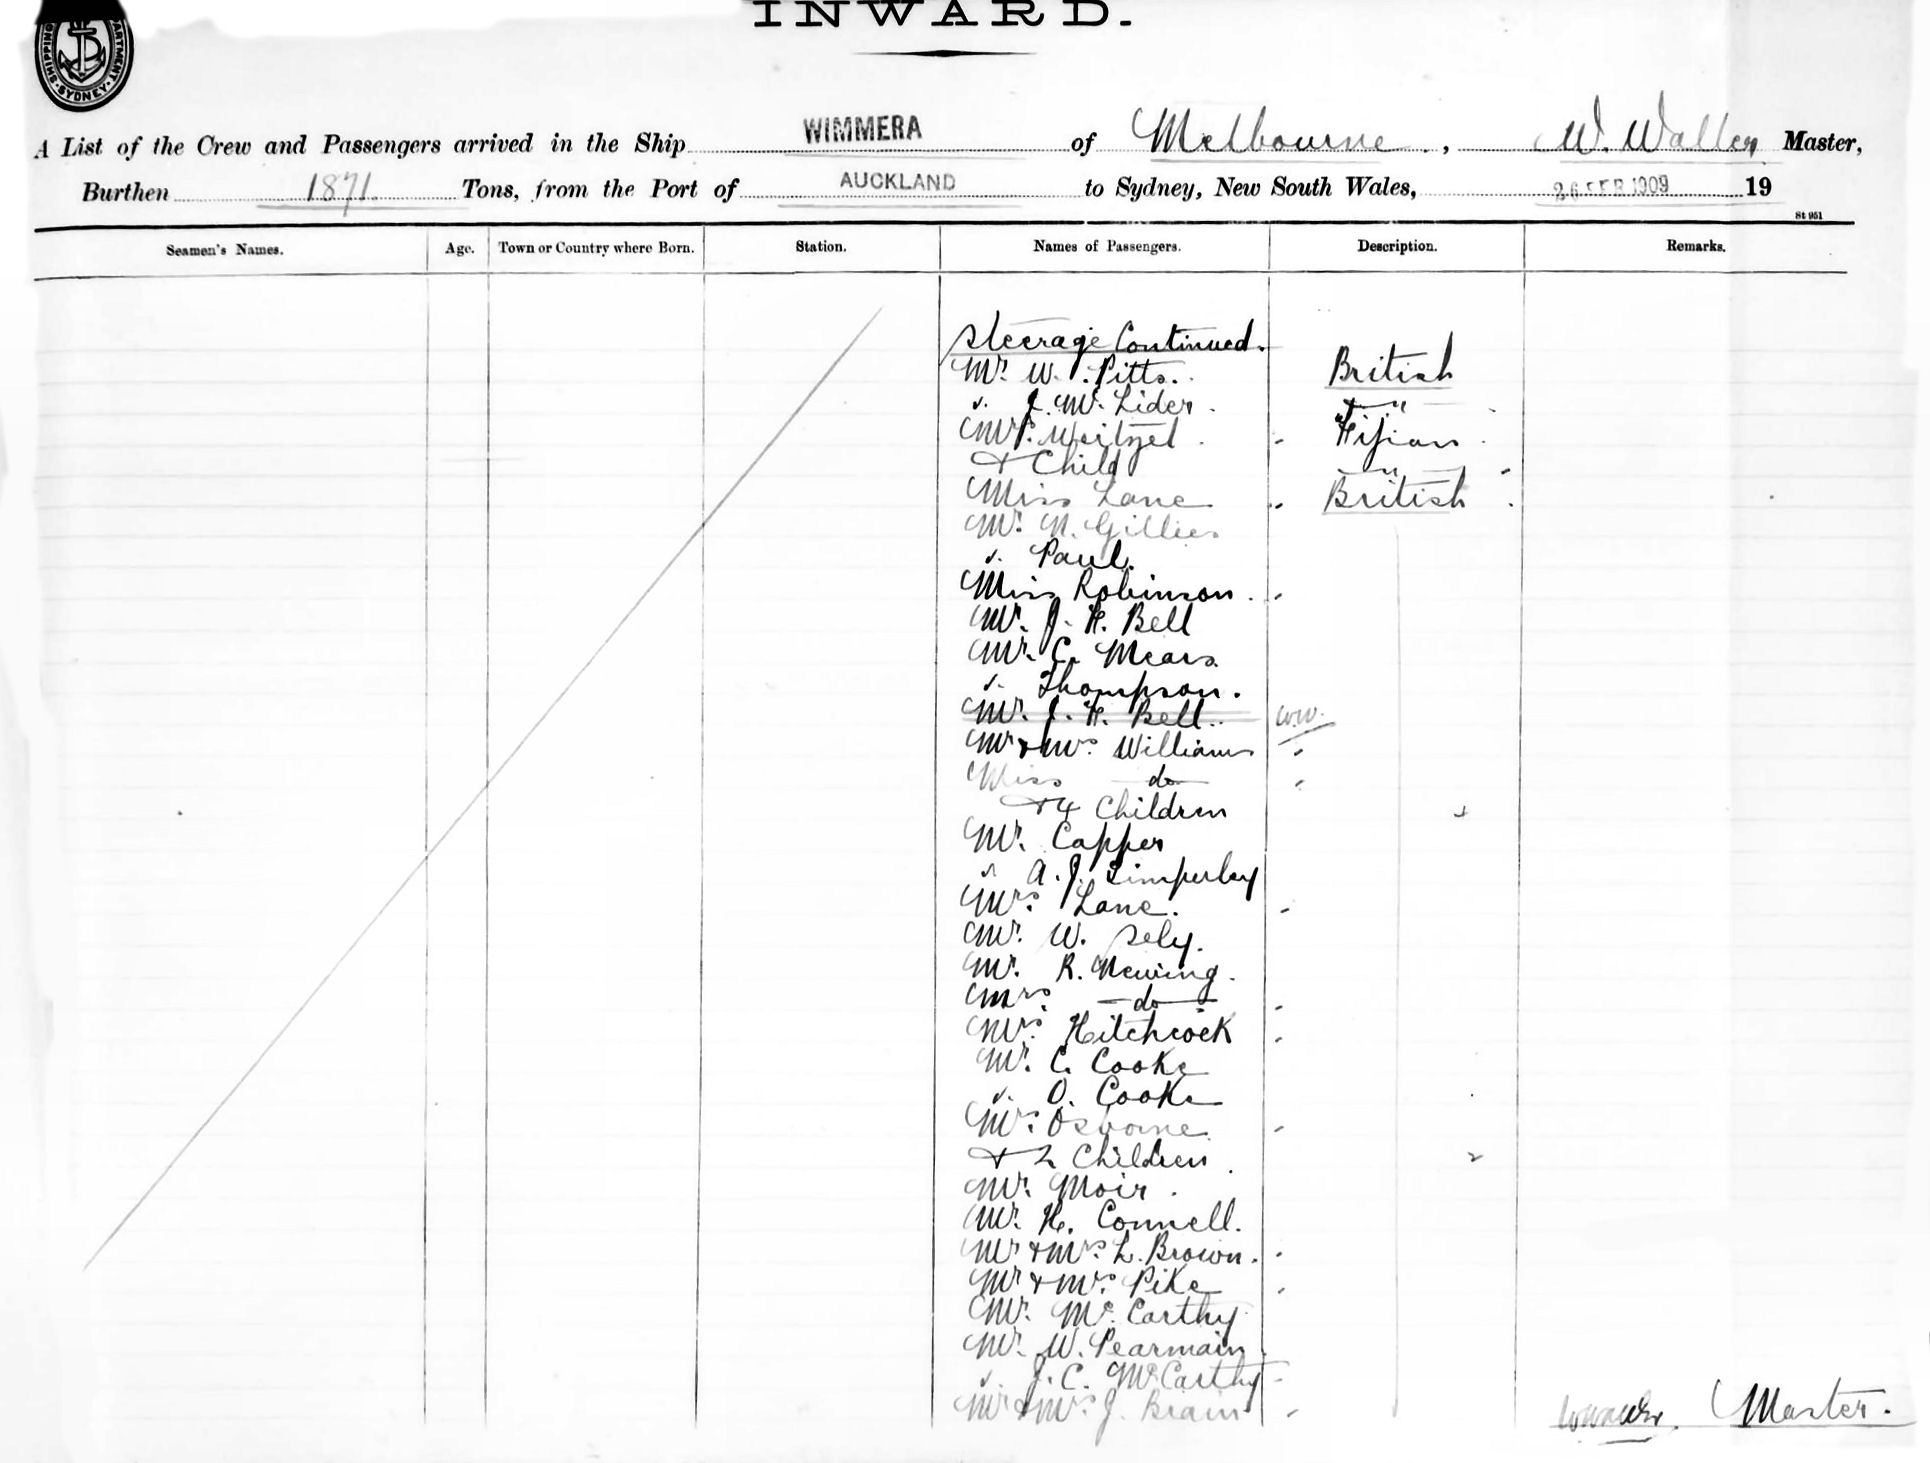 INWARD.
SHIPPING DEPARTMENT SYDNEY
A List of the Crew and Passengers arrived in the Ship WIMMERA of Melbourne, W. Waller Master,
Burthen 1871. Tons, from the Port of AUCKLAND to Sydney, New South Wales, 26 FEB 1909 19
St 951
Seamen's Names. Age. Town or Country where Born. Station. Names of Passengers. Description. Remarks.
Steerage Continued.
Mr. W. Pitts. British
". J. W. Lider. "
Mrs. Weitzel. Fijian
& Child "
Miss Lane British
Mr. N. Gillies
". Paul.
Miss Robinson.
Mr. J. H. Bell
Mr. C. Mears.
". Thompson.
Mr. J. H. Bell. W.W.
Mr & Mrs Williams
Miss do
& 4 Children
Mr. Capper
" A. J. Timperley
Mrs. Lane.
Mr. W. Sely.
Mr. R. Newing.
Mrs. do
Mrs. Hitchcock
Mr. C. Cooke
". O. Cooke
Mrs. Osborne
& 2 Children.
Mr. Moir.
Mr. H. Connell.
Mr & Mrs. L. Brown.
Mr & Mrs. Pike
Mr. McCarthy
Mr. W. Pearmain
". J. C. McCarthy
Mr & Mrs. J. Brain
W Waller. Master.